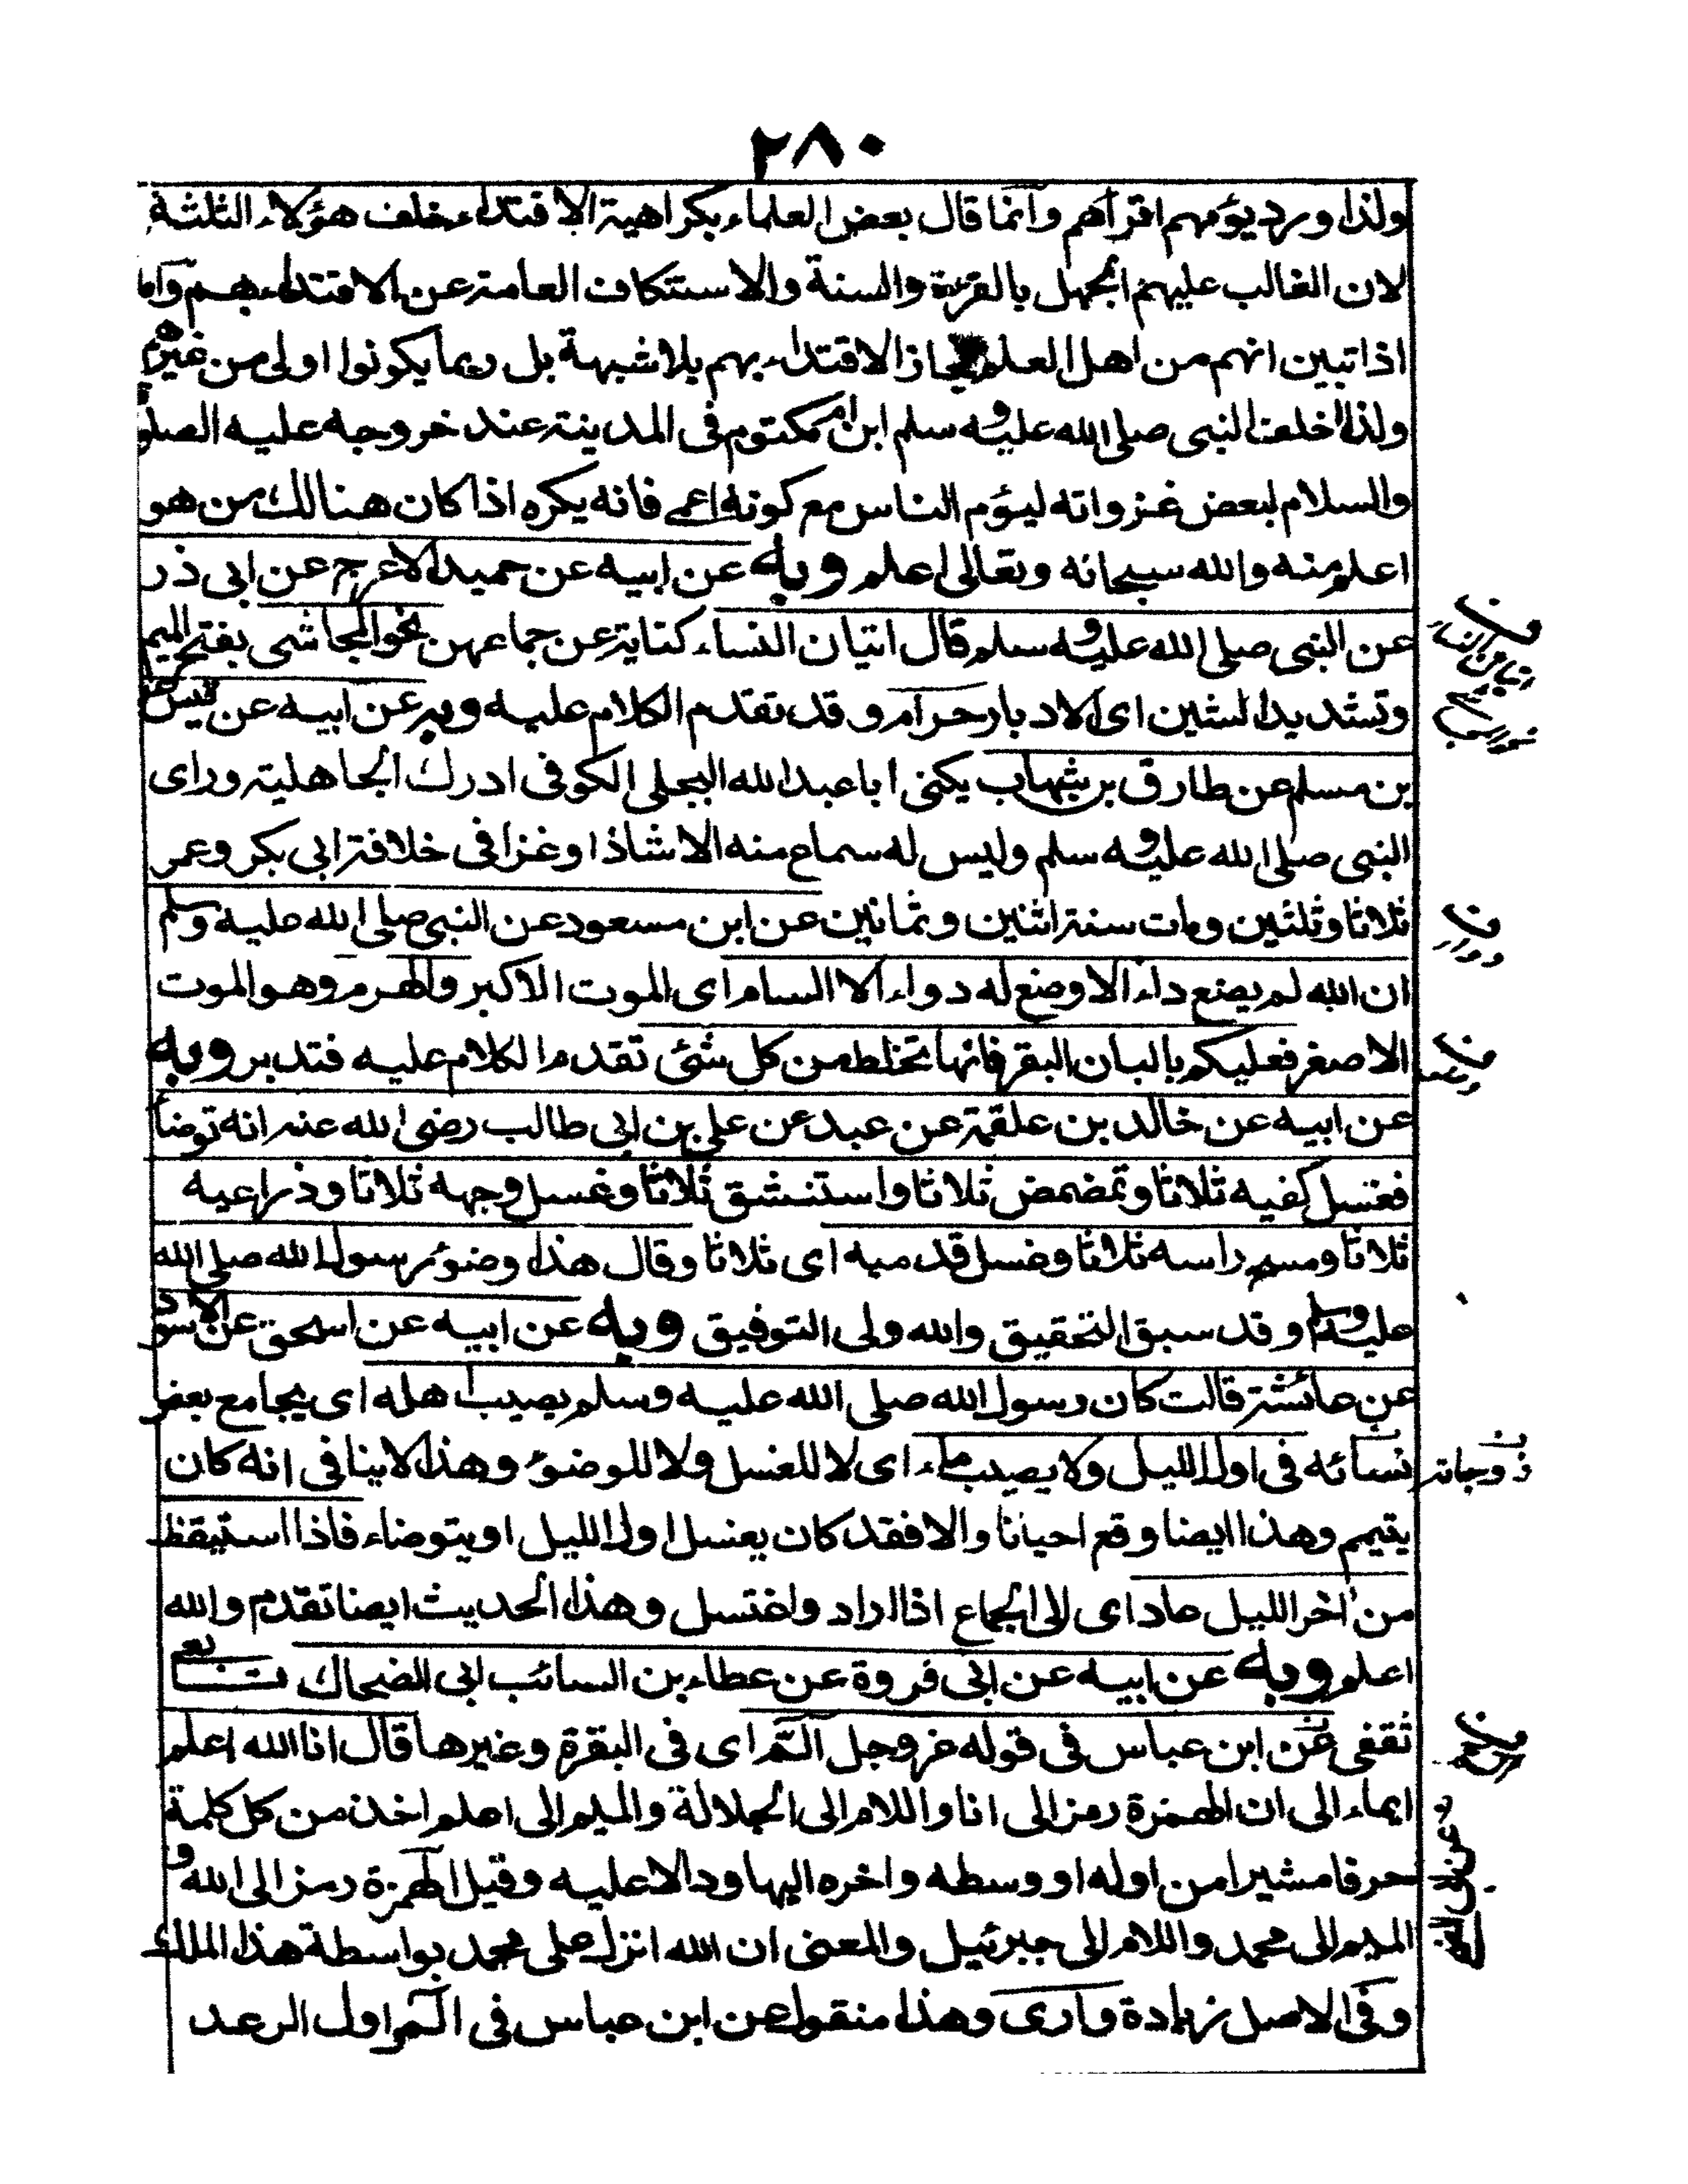 ٢٨٠
ولذا ورد يؤمهم اقرأهم وانما قال بعض العلماء بكراهية الاقتداء خلف هؤلاء الثلثة
لان الغالب عليهم الجهل بالقرءة والسنة والاستنكاف العامة عن الاقتداء بهم واما
اذا تبين انهم من اهل العلم جاز الاقتداء بهم بلا شبهة بل ربما يكونوا اولى من غيرهم
ولذا اخلف النبى صلى الله عليه وسلم ابن ام مكتوم فى المدينة عند خروجه عليه الصلوة
والسلام لبعض غزواته ليؤم الناس مع كونه اعمى فانه يكره اذا كان هنالك من هو
اعلم منه والله سبحانه وتعالى اعلم وبه عن ابيه عن حميد الاعرج عن ابى ذر
عن النبى صلى الله عليه وسلم قال اتيان النساء كناية عن جماعهن نحو المحاشى بفتح الميم
وتشديد الشين اى الادبار حرام وقد تقدم الكلام عليه وبه عن ابيه عن قيس
بن مسلم عن طارق بن شهاب يكنى ابا عبد الله البجلى الكوفى ادرك الجاهلية وراى
النبى صلى الله عليه وسلم وليس له سماع منه الا شاذا وغزا فى خلافة ابى بكر وعمر
ثلاثا وثلثين ومات سنة اثنين وثمانين عن ابن مسعود عن النبى صلى الله عليه وسلم
ان الله لم يضع داء الا وضع له دواء الا السام اى الموت الاكبر والهرم وهو الموت
الاصغر فعليكم بالبان البقر فانها تخلط من كل شئ تقدم الكلام عليه فتدبر وبه
عن ابيه عن خالد بن علقمة عن عبد عن على بن ابى طالب رضى الله عنه انه توضأ
فغسل كفيه ثلاثا وتمضمض ثلاثا واستنشق ثلاثا وغسل وجهه ثلاثا وذراعيه
ثلاثا ومسح راسه ثلاثا وغسل قدميه اى ثلاثا وقال هذا وضوء رسول الله صلى الله
عليه وسلم وقد سبق التحقيق والله ولى التوفيق وبه عن ابيه عن اسحق عن الاسود
عن عائشة قالت كان رسول الله صلى الله عليه وسلم يصيب اهله اى يجامع بعض
نسائه فى اول الليل ولا يصيب ماء اى لا للغسل ولا للوضوء وهذا لا ينافى انه كان
يتيمم وهذا ايضا وقع احيانا والا فقد كان يغسل اول الليل او يتوضاء فاذا استيقظ
من اخر الليل عاد اى الى الجماع اذا اراد واغتسل وهذا الحديث ايضا تقدم والله
اعلم وبه عن ابيه عن ابى فروة عن عطاء بن السائب ابى الضحاك
ثقفى عن ابن عباس فى قوله عز وجل الٓمٓ اى فى البقرة وغيرها قال انا الله اعلم
ايماء الى ان الهمزة رمز الى انا واللام الى الجلالة والميم الى اعلم اخذ من كل كلمة
حرفا مشيرا من اوله او وسطه واخره اليها ودالا عليه وقيل الهمزة رمز الى الله و
الميم الى محمد واللام الى جبرئيل والمعنى ان الله انزل على محمد بواسطة هذا الملك
وفى الاصل زيادة وارى وهذا منقول عن ابن عباس فى الٓمٓر اول الرعد
زوجاته